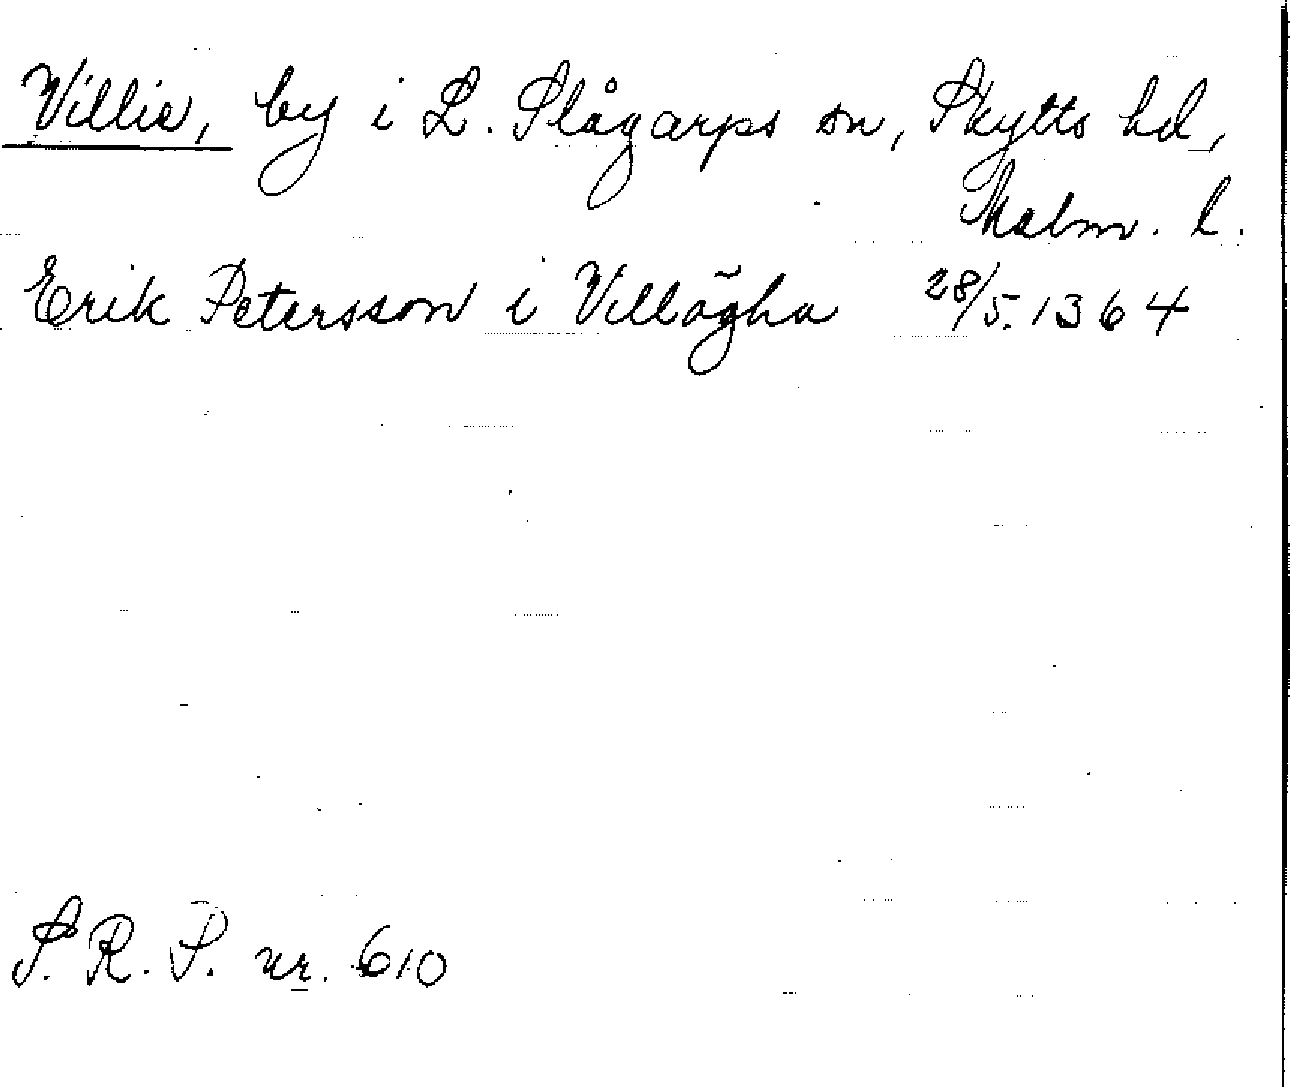 Villie, by i L. Slågarps sn, Skytts hd,
Malm. l.
Erik Petersson i Villõgha 28/5.1364
S. R. P. nr. 610